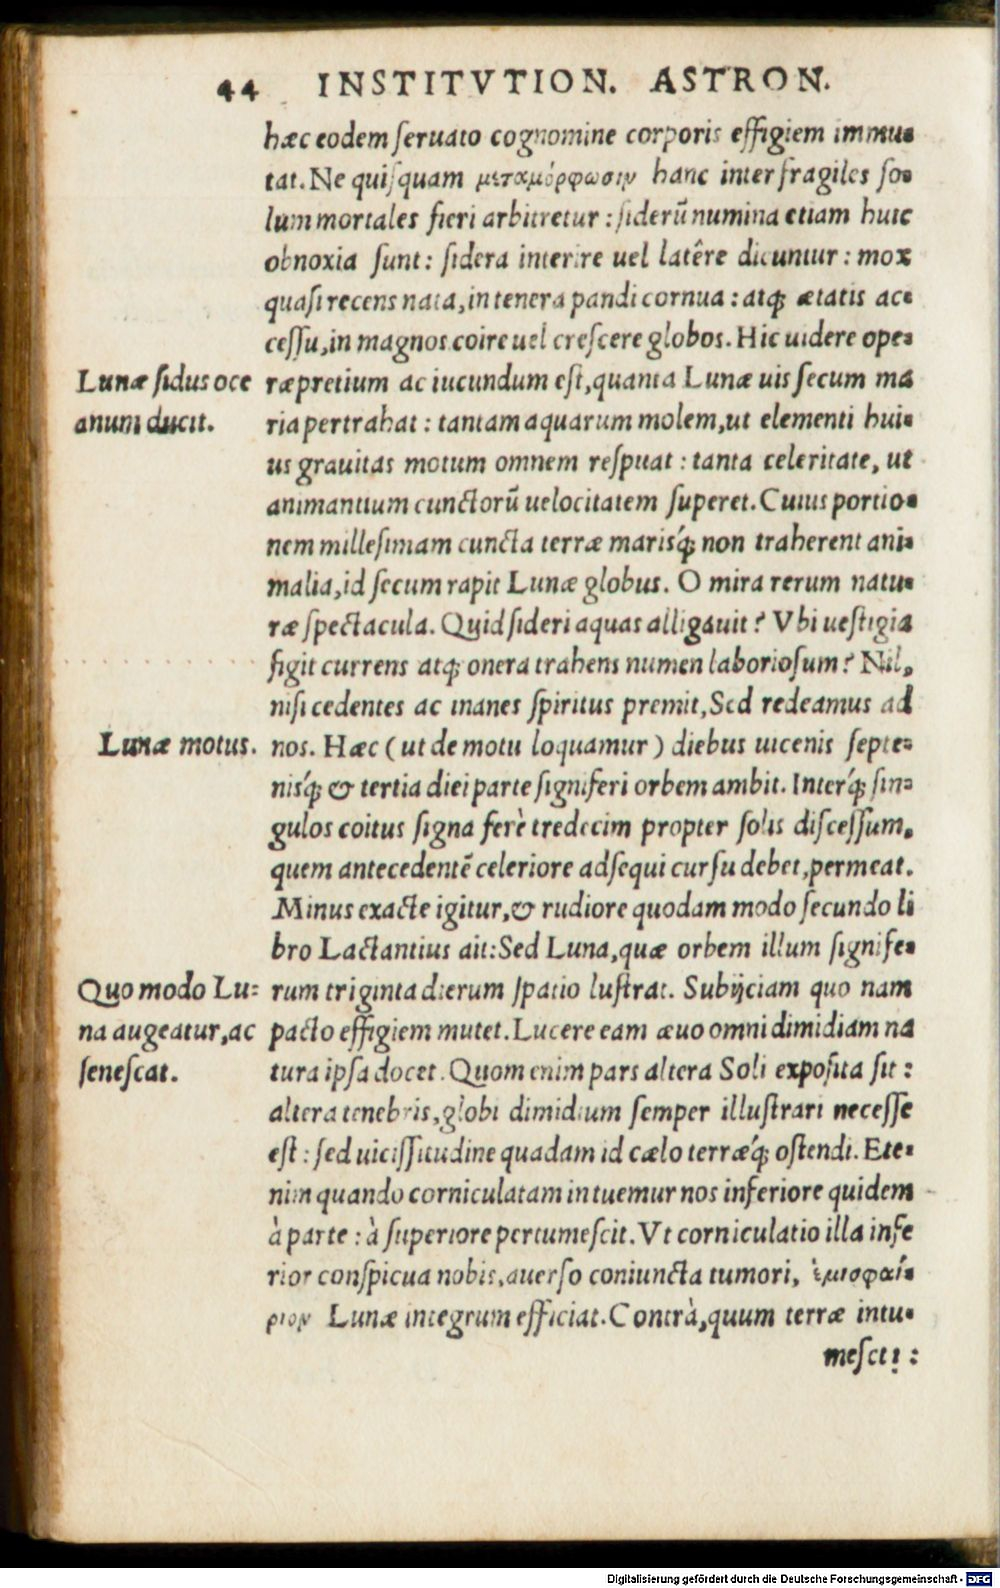 44 INSTITVTION. ASTRON.
hæc eodem ſeruato cognomine corporis effigiem immu-
tat. Ne quiſquam μεταμόρφωσιν hanc inter fragiles ſo-
lum mortales fieri arbitretur: ſiderū numina etiam huic
obnoxia ſunt: ſidera interire uel latêre dicuntur: mox
quaſi recens nata, in tenera pandi cornua: atq; ætatis ac-
ceſſu, in magnos coire uel creſcere globos. Hic uidere ope-
Lunæ ſidus oce
anum ducit.
ræpretium ac iucundum eſt, quanta Lunæ uis ſecum ma
ria pertrahat: tantam aquarum molem, ut elementi hui-
us grauitas motum omnem reſpuat: tanta celeritate, ut
animantium cunctorū uelocitatem ſuperet. Cuius portio-
nem milleſimam cuncta terræ marisq́; non traherent ani-
malia, id ſecum rapit Lunæ globus. O mira rerum natu-
ræ ſpectacula. Quid ſideri aquas alligauit? Vbi ueſtigia
figit currens atq; onera trahens numen laborioſum? Nil,
niſi cedentes ac inanes ſpiritus premit, Sed redeamus ad
Lunæ motus.
nos. Hæc (ut de motu loquamur) diebus uicenis ſepte-
nisq́; & tertia diei parte ſigniferi orbem ambit. Interq́; ſin-
gulos coitus ſigna ferè tredecim propter ſolis diſceſſum,
quem antecedentē celeriore adſequi curſu debet, permeat.
Minus exacte igitur, & rudiore quodam modo ſecundo li
bro Lactantius ait: Sed Luna, quæ orbem illum ſignife-
Quo modo Lu-
na augeatur, ac
ſeneſcat.
rum triginta dierum ſpatio luſtrat. Subijciam quo nam
pacto effigiem mutet. Lucere eam æuo omni dimidiam na
tura ipſa docet. Quom enim pars altera Soli expoſita ſit:
altera tenebris, globi dimidium ſemper illuſtrari neceſſe
eſt: ſed uiciſſitudine quadam id cælo terræq́; oſtendi. Ete-
nim quando corniculatam intuemur nos inferiore quidem
à parte: à ſuperiore pertumeſcit. Vt corniculatio illa infe
rior conſpicua nobis, auerſo coniuncta tumori, ἑμισφαί-
ριον Lunæ integrum efficiat. Contrà, quum terræ intu-
meſcit:
Digitalisierung gefördert durch die Deutsche Forschungsgemeinschaft - DFG